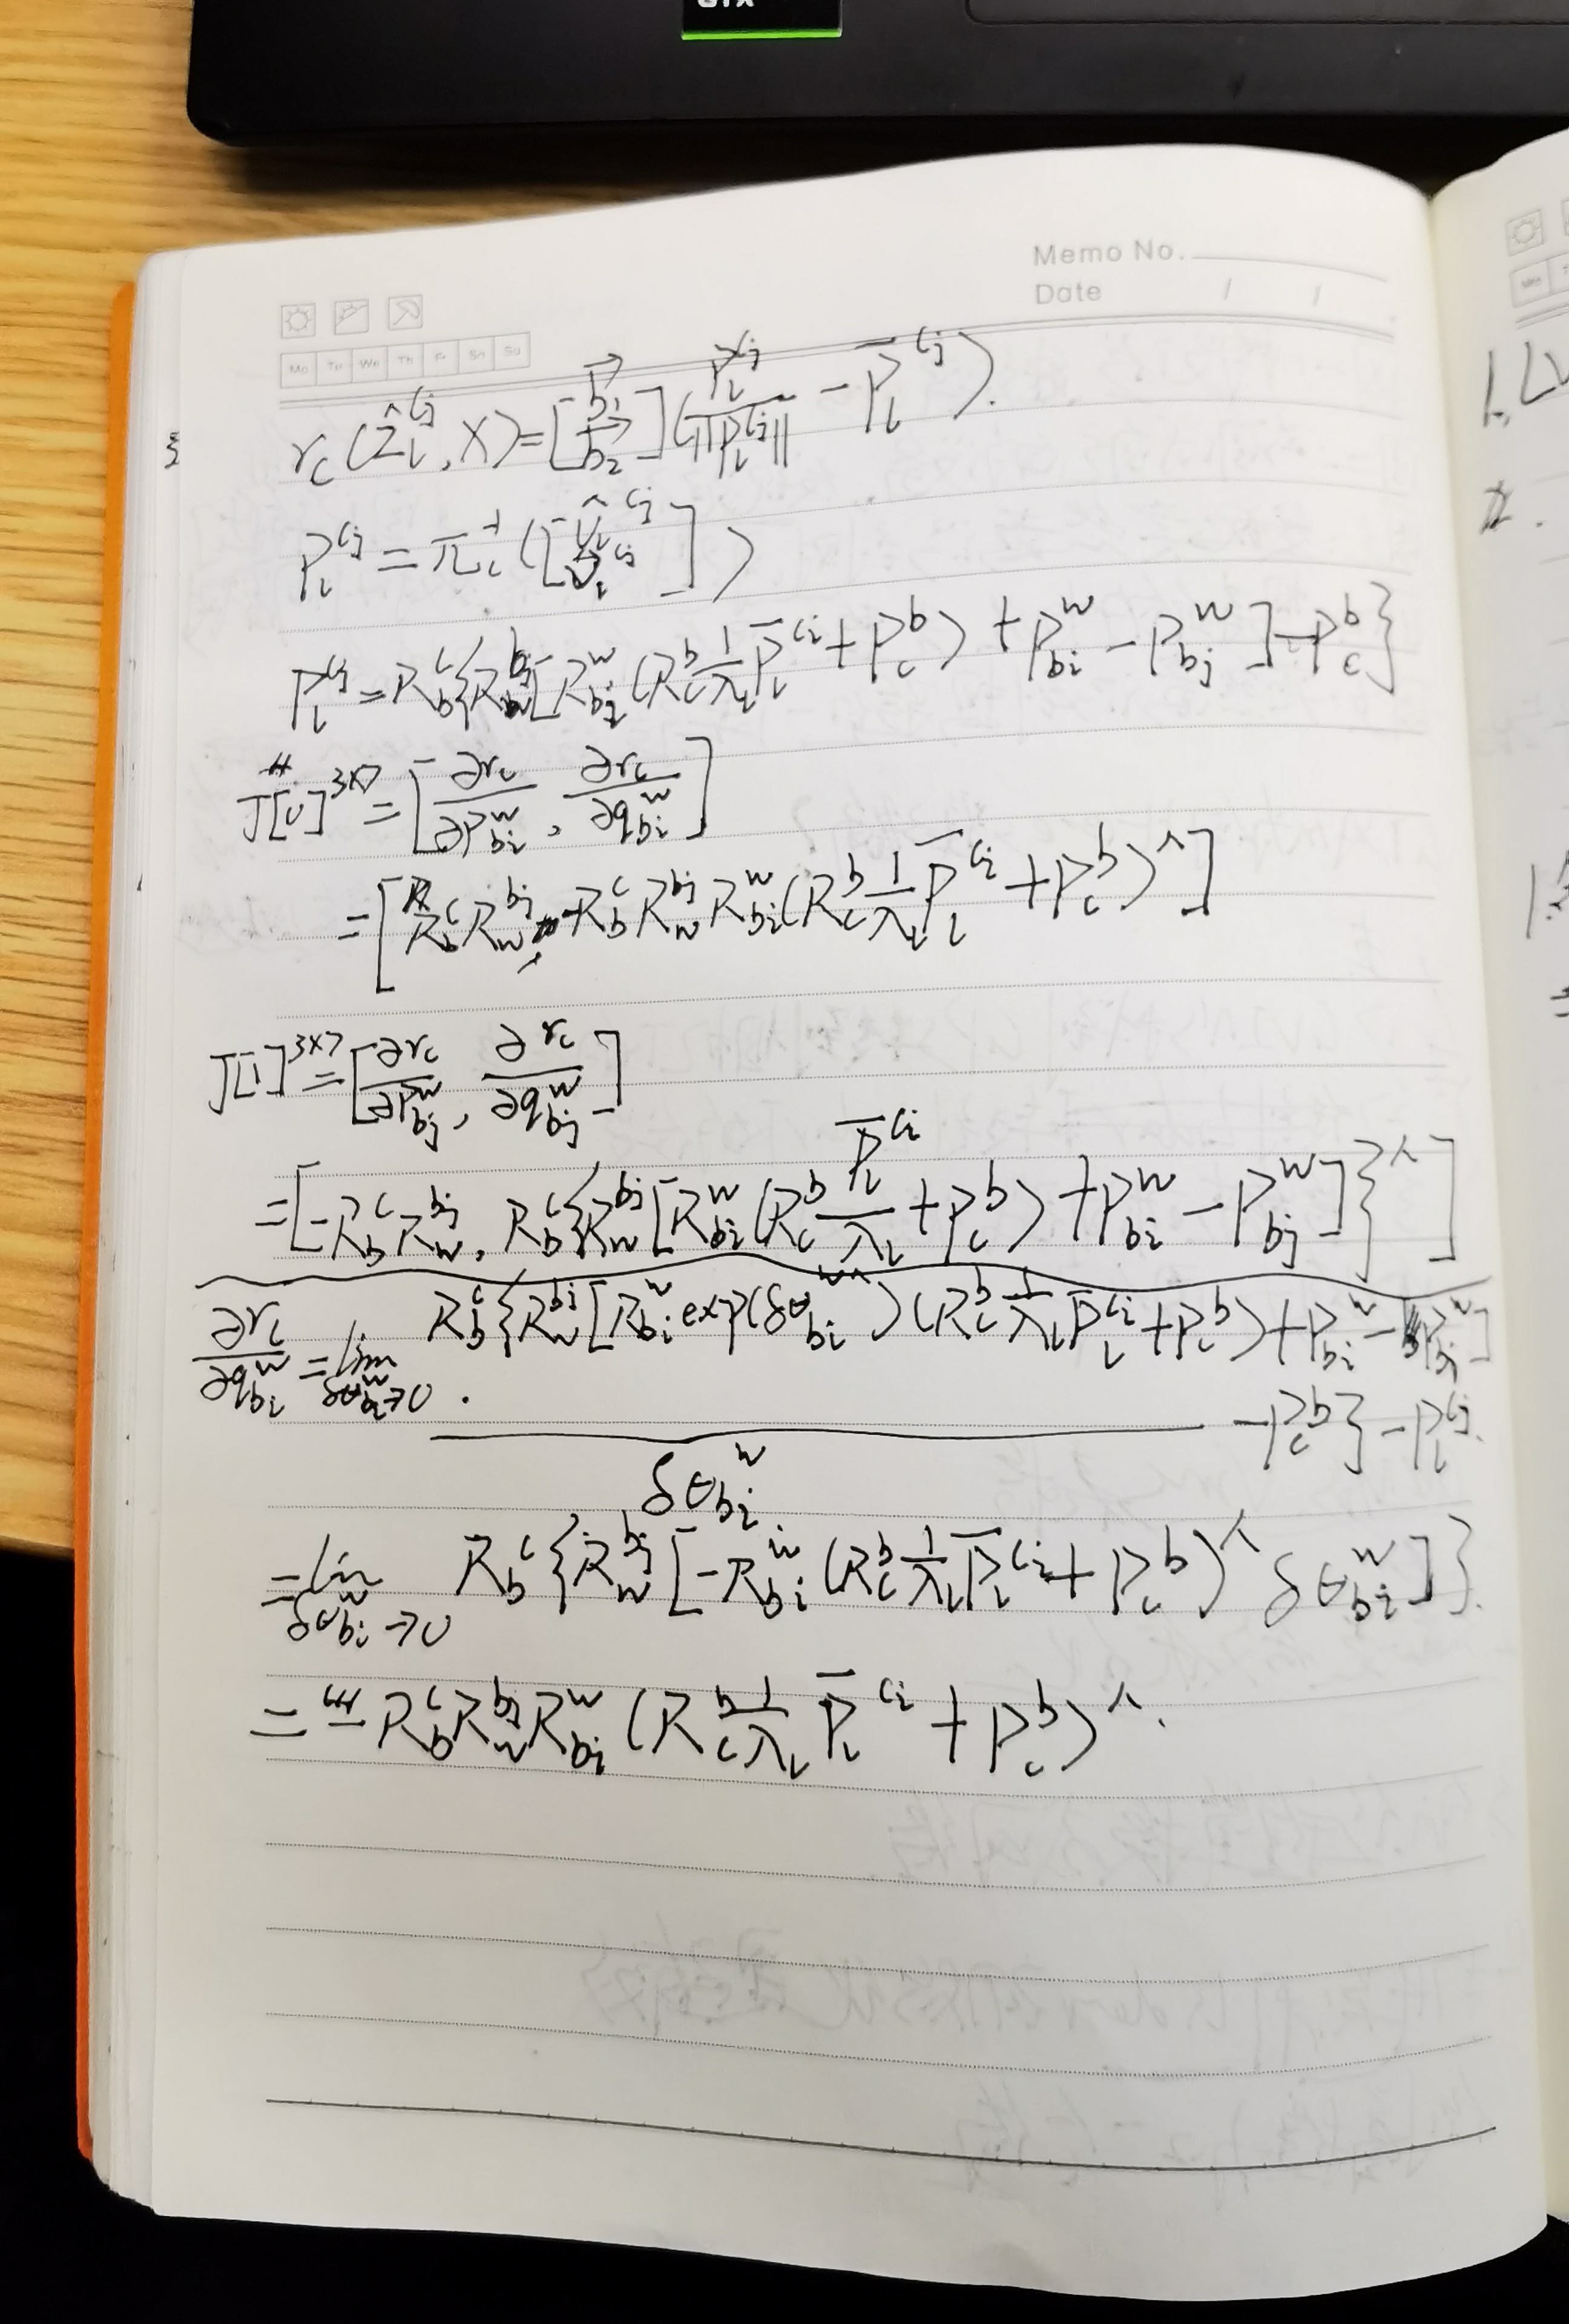 GTX
Memo No.
Date / /
Mo Tu We Th Fr Sa Su
r_c(\hat{z}_l^{c_j}, X) = [\vec{b_1} \vec{b_2}] (\frac{P_l^{c_j}}{||P_l^{c_j}||} - \bar{P}_l^{c_j}).
P_l^{c_j} = π_c^{-1}([\hat{u}_l^{c_j} \hat{v}_l^{c_j}])
P_l^{c_j} = R_b^c{R_w^{b_j}[R_{b_i}^w(R_c^b \frac{1}{λ_l} \bar{P}_l^{c_i} + P_c^b) + P_{b_i}^w - P_{b_j}^w] - P_c^b}
J[0]^{3×7} = [\frac{∂r_c}{∂P_{b_i}^w}, \frac{∂r_c}{∂q_{b_i}^w}]
= [R_b^c R_w^{b_j}, -R_b^c R_w^{b_j} R_{b_i}^w (R_c^b \frac{1}{λ_l} \bar{P}_l^{c_i} + P_c^b)^∧]
J[1]^{3×7} = [\frac{∂r_c}{∂P_{b_j}^w}, \frac{∂r_c}{∂q_{b_j}^w}]
= [-R_b^c R_w^{b_j}, R_b^c{R_w^{b_j}[R_{b_i}^w(R_c^b \frac{\bar{P}_l^{c_i}}{λ_l} + P_c^b) + P_{b_i}^w - P_{b_j}^w]}^∧]
\frac{∂r_c}{∂q_{b_i}^w} = \lim_{δθ_{b_i}^w→0} \frac{R_b^c{R_w^{b_j}[R_{b_i}^w exp(δθ_{b_i}^{w∧})(R_c^b \frac{1}{λ_l} \bar{P}_l^{c_i} + P_c^b) + P_{b_i}^w - P_{b_j}^w] - P_c^b} - P_l^{c_j}}{δθ_{b_i}^w}
= \lim_{δθ_{b_i}^w→0} R_b^c{R_w^{b_j}[-R_{b_i}^w(R_c^b \frac{1}{λ_l} \bar{P}_l^{c_i} + P_c^b)^∧ δθ_{b_i}^w]}
= -R_b^c R_w^{b_j} R_{b_i}^w (R_c^b \frac{1}{λ_l} \bar{P}_l^{c_i} + P_c^b)^∧.